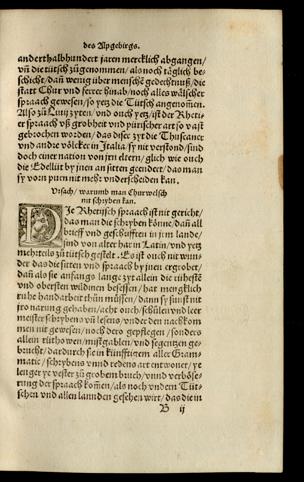 des Alpgebirgs.
anderthalbhundert jaren mercklich abgangen/
vñ die tütsch zůgenommen/ als noch täglich be-
schicht/ dañ wenig über menschẽ gedechtnuß/ die
statt Chur vnd ferrer hinab/ noch alles wälscher
spraach gewesen/ so yetz die Tütsch angenom̃en.
Also zů Liuij zyten/ vnd ouch yetz/ ist der Rheti-
er spraach vß grobheit vnd pürischer art so vast
gebrochen worden/ das diser zyt die Thuscaner
vnd andre völcker in Italia sy nit verstond/ sind
doch einer nation von jrn eltern/ glich wie ouch
die Edellüt by jnen an sitten geendert/ das man
sy vorn puren nit mehr vnderscheiden kan.
Vrsach/ warumb man Churwelsch
nit schryben kan.
DJe Rhetisch spraach ist nit gericht/
das man die schryben könne/ dañ all
brieff vnd geschrifften in jrm lande/
sind von alter har in Latin/ vnd yetz
mehrteils zů tütsch gestelt. Es ist ouch nit wun-
der das die sitten vnd spraach by jnen ergrobet/
dañ als sie anfangs lange zyt allein die rühestẽ
vnd obersten wildinen besessen/ hat mengklich
ruhe handarbeit thůn můssen/ dann sy sunst nit
jro narung gehaben/ acht ouch/ schůlen vnd leer
meister schrybens vñ lesens/ vnder den nachkom
men nit gewesen/ noch dero gepflegen/ sonders
allein kůthowen/ mistgablen/ vnd segentzen ge-
brucht/ dardurch sie in künfftigem aller Gram-
matic/ schrybens vnnd redens art entwoner/ ye
lenger ye vester zů grobem bruch/ vnnd verböse-
rung der spraach kom̃en/ als noch vnder̃n Tüt-
schen vnd allen lannden gesehen wirt/ das die in
B ij